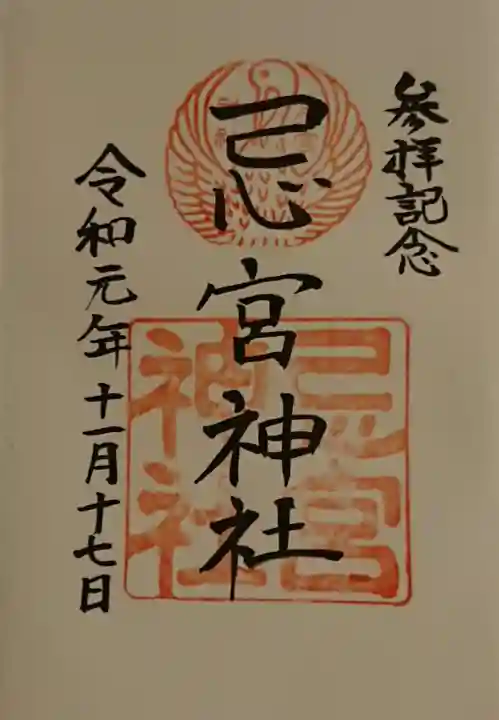 参拝記念
忌宮神社
忌宮
神社
令和元年十一月十七日